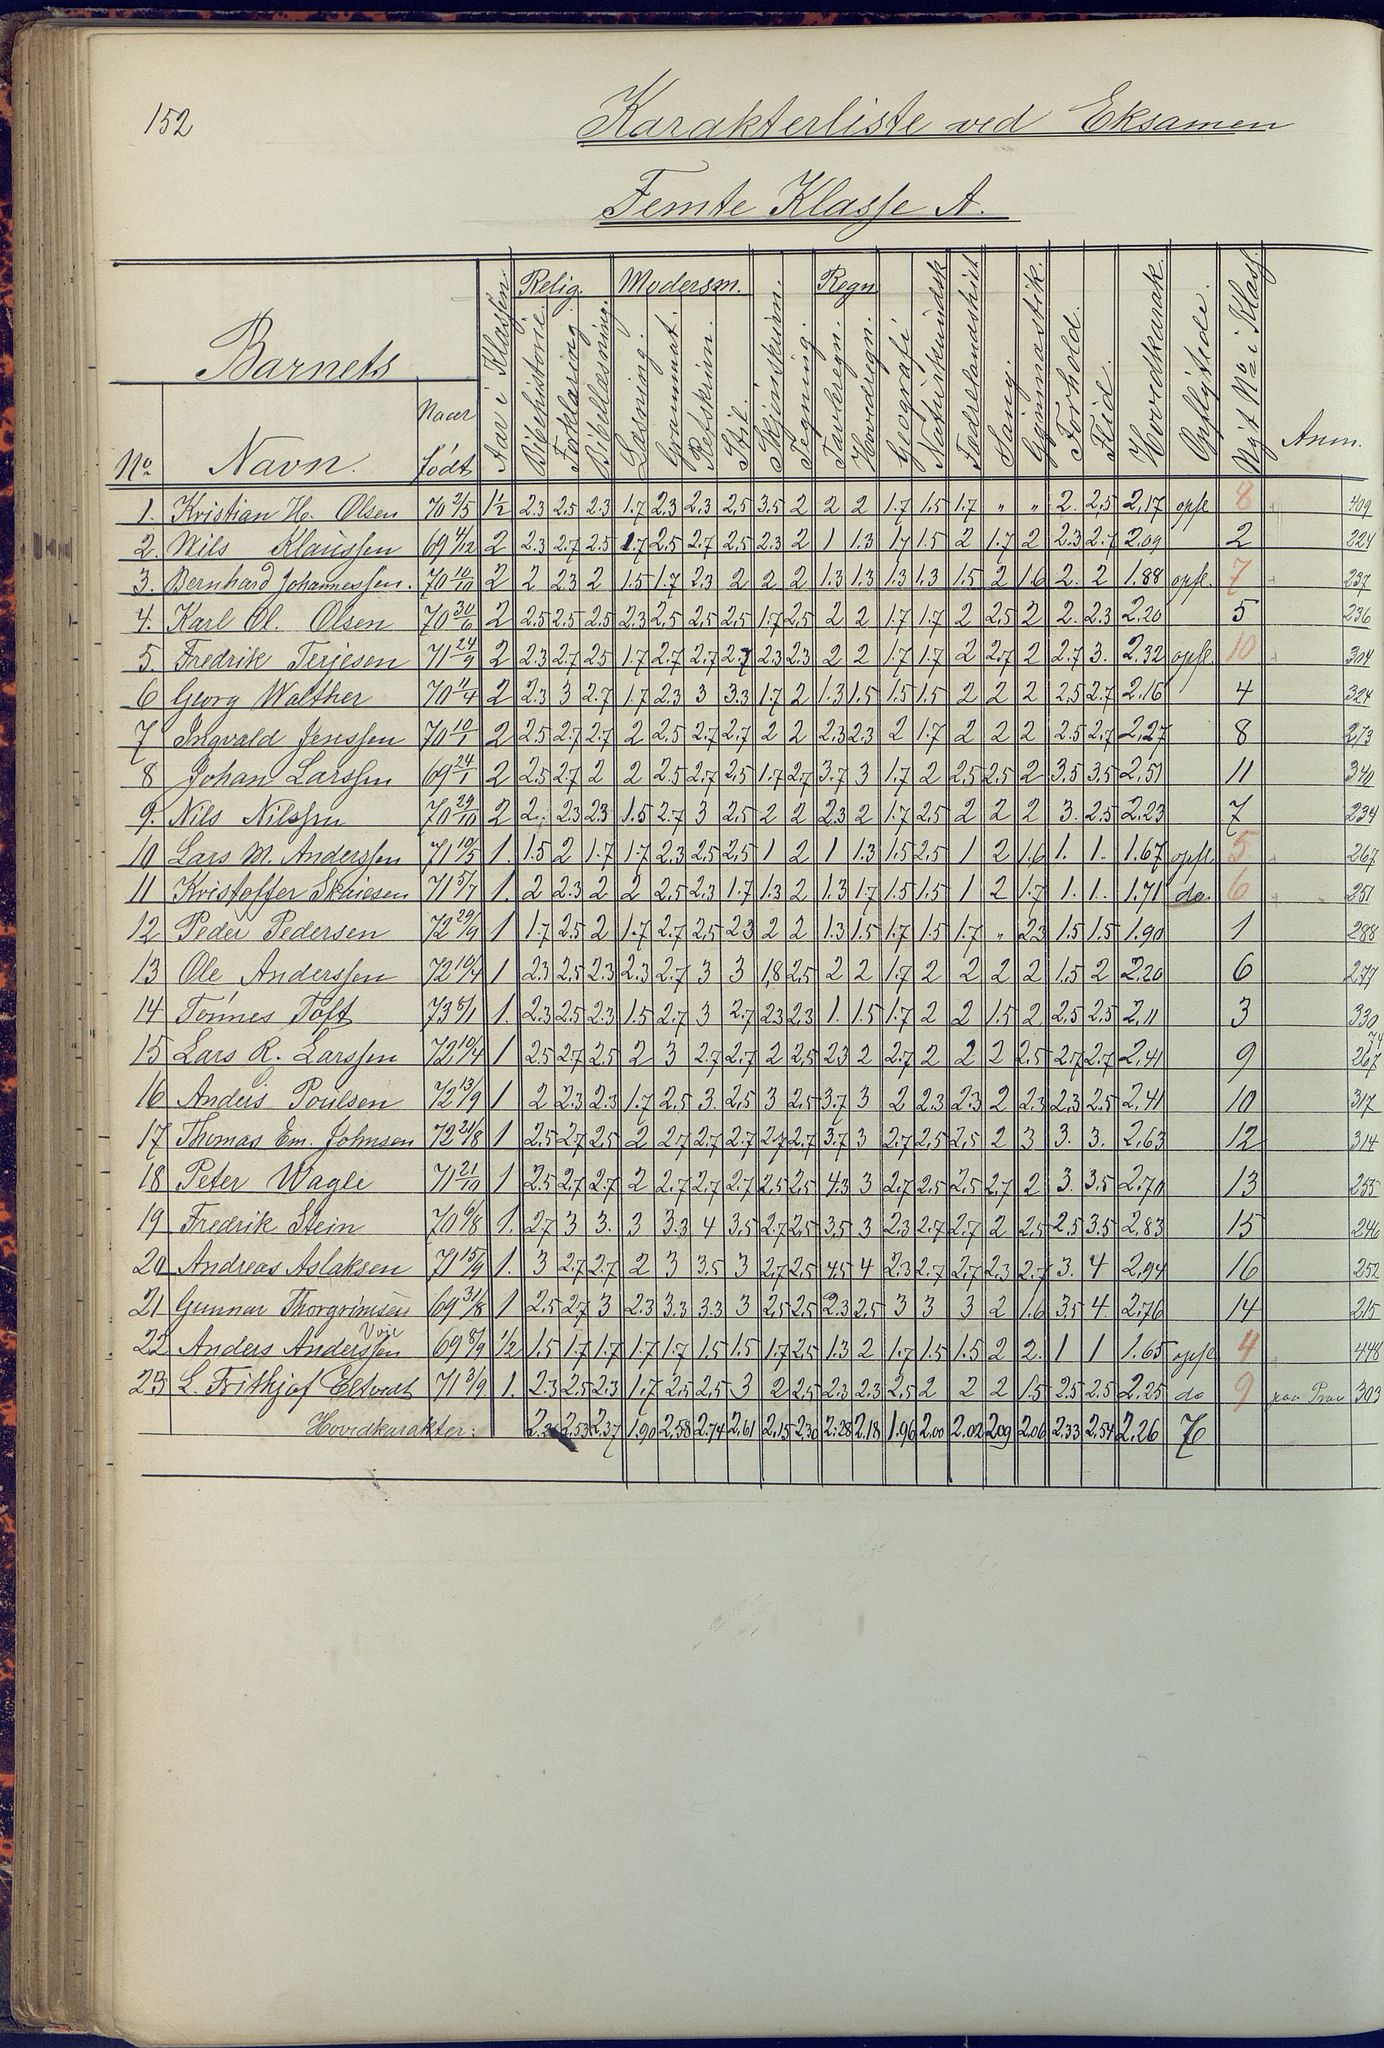 152
Karakterliste ved Eksamen
Femte Klasse A.
Barnets
No Navn. Naar født Aar i Klassen. Relig. Bibelhistorie. Forklaring. Bibellæsning. Modersm. Læsning. Grammat. Retskrivn. Stil. Skjønskrivn. Tegning. Regn Tavleregn. Hovedregn. Geografi Naturkundsk Fædrelandshist Sang. Gymnastik. Forhold. Flid. Hovedkarak. Opflyttede. Nyt No i Klass. Anm.
1. Kristian H. Olsen 70 2/5 1½ 2.3 2.5 2.3 1.7 2.3 2.3 2.5 3.5 2 2 2 1.7 1.5 1.7 " " 2. 2.5 2,17 opfl. 8 409
2. Nils Klaussen 69 4/12 2 2.3 2.7 2.5 1.7 2.5 2.7 2.5 2.3 2 1 1.3 1.7 1.5 2 1.7 2 2.3 2.7 2.09 2 224
3. Bernhard Johannessen. 70 10/10 2 2 2.3 2 1.5 1.7 2.3 2 2 2 1.3 1.3 1.3 1.3 1.5 2 1.6 2. 2 1.88 opfl. 7 237
4. Karl Ol. Olsen 70 30/6 2 2.5 2.5 2.5 2.3 2.5 2.5 2.5 1.7 2.5 2 2 1.7 1.7 2 2.5 2 2. 2.3 2.20 5 236
5. Fredrik Terjesen 71 24/9 2 2.3 2.7 2.5 1.7 2.7 2.7 2.7 2.3 2.3 2 2 1.7 1.7 2 2.7 2 2.7 3. 2.32 opfl. 10 304
6 Georg Walther 70 11/4 2 2.3 3 2.7 1.7 2.3 3 3.3 1.7 2 1.3 1.5 1.5 1.5 2 2 2 2.5 2.7 2.16 4 324
7 Ingvald Jenssen 70 10/1 2 2.5 2.7 2.7 2 2.5 2.7 2.7 2 2 2.3 2.3 2 1.7 2 2 2 2.5 2.7 2,27 8 273
8 Johan Larssen 69 24/1 2 2.5 2.7 2 2 2.5 2.7 2.5 1.7 2.7 3.7 3 1.7 2 2.5 2.5 2 3.5 3.5 2.51 11 340
9. Nils Nilssen 70 29/10 2 2. 2.3 2.3 1.5 2.7 3 2.5 2 2 2.3 2 1.7 2.5 2 2 2 3. 2.5 2.23 7 234
10 Lars M. Anderssen 71 10/5 1. 1.5 2 1.7 1.7 2.3 2.5 2.5 1 2 1 1.3 1.5 2.5 1 2 1.6 1. 1. 1.67 opfl. 5 267
11 Kristoffer Skaiesen 71 5/7 1. 2 2.3 2 2 2.5 2.3 1.7 1.3 2 1.3 1.7 1.5 1.5 1 2 1.7 1. 1. 1.71 do. 6 251
12 Peder Pedersen 72 29/9 1 1.7 2.5 2 1.7 2.7 2.5 2.3 2 2 1.3 1.5 1.7 1.5 1.7 " 2.3 1.5 1.5 1.90 1 288
13 Ole Anderssen 72 10/4 1 2.3 2.5 2.3 2.3 2.7 3 3 1,8 2.5 2 2 1.7 2 2 2 2 1.5 2 2.20 6 277
14 Tönnes Toft 73 8/1 1. 2.3 2.5 2.3 1.5 2.7 3 2.7 2.3 2.3 1. 1.5 1.7 2 2 1.5 2 2.5 2.5 2,11 3 330
15 Lars R. Larssen 72 10/4 1 2.5 2.7 2.5 2 3 2.7 2.7 2 2.5 2.3 2 2.7 2 2 2 2.5 2.7 2.7 2.41 9 267 74
16 Anders Poulsen 72 13/9 1 2 2.3 2.3 1.7 2.5 3. 2.5 3 2.5 3.7 3 2 2.3 2.3 2 2.3 2.3 2.5 2.41 10 317
17 Thomas Em. Johnsen 72 21/8 1 2.5 2.7 2.5 2 2.7 2.7 2.7 2.7 2.7 3.7 3 2.7 2.5 2.5 2 3 3. 3. 2.63 12 314
18 Peter Wagle 71 21/10 1. 2.5 2.7 2.7 2 2.7 2.7 2.7 2.5 2.5 4.3 3 2.7 2.5 2.5 2.7 2 3. 3.5 2.70 13 255
19 Fredrik Stein 70 6/8 1. 2.7 3 3. 3 3.3 4 3.5 2.7 2.5 3.5 3 2.3 2.7 2.7 2 2.5 2.5 3.5 2.83 15 246
20 Andreas Aslaksen 71 15/9 1. 3 2.7 2.7 2 3 3.5 3 2.7 2.5 4.5 4 2.3 2.7 2.7 2.3 2.7 3. 4 2.94 16 252
21 Gunnar Thorgrimsen 69 31/8 1 2.5 2.7 3 2.3 3.3 3.3 3 2.5 2.5 2.3 2.5 3 3 3 2 1.6 3.5 4. 2.76 14 215
22 Anders Anderssen Voie 69 8/9 ½ 1.5 1.7 1.7 1.7 1.7 1.5 1.5 1.7 2.5 1.3 2 1.7 1.5 1.5 2 2. 1 1 1.65 opfl 4 448
23 L. Frithjof Eltvedt 71 3/9 1. 2.3 2.5 2.3 1.7 2.5 2.5 3 2 2.5 2.3 2.3 2.5 2 2 2 1.5 2.5 2.5 2.25 do 9 paa Prøv 303
Hovedkarakter: 2.26 2.53 2.37 1.90 2.58 2.74 2.61 2.15 2.30 2.28 2.18 1.96 2.00 2.02 2.09 2.06 2.33 2.54 2.26 7